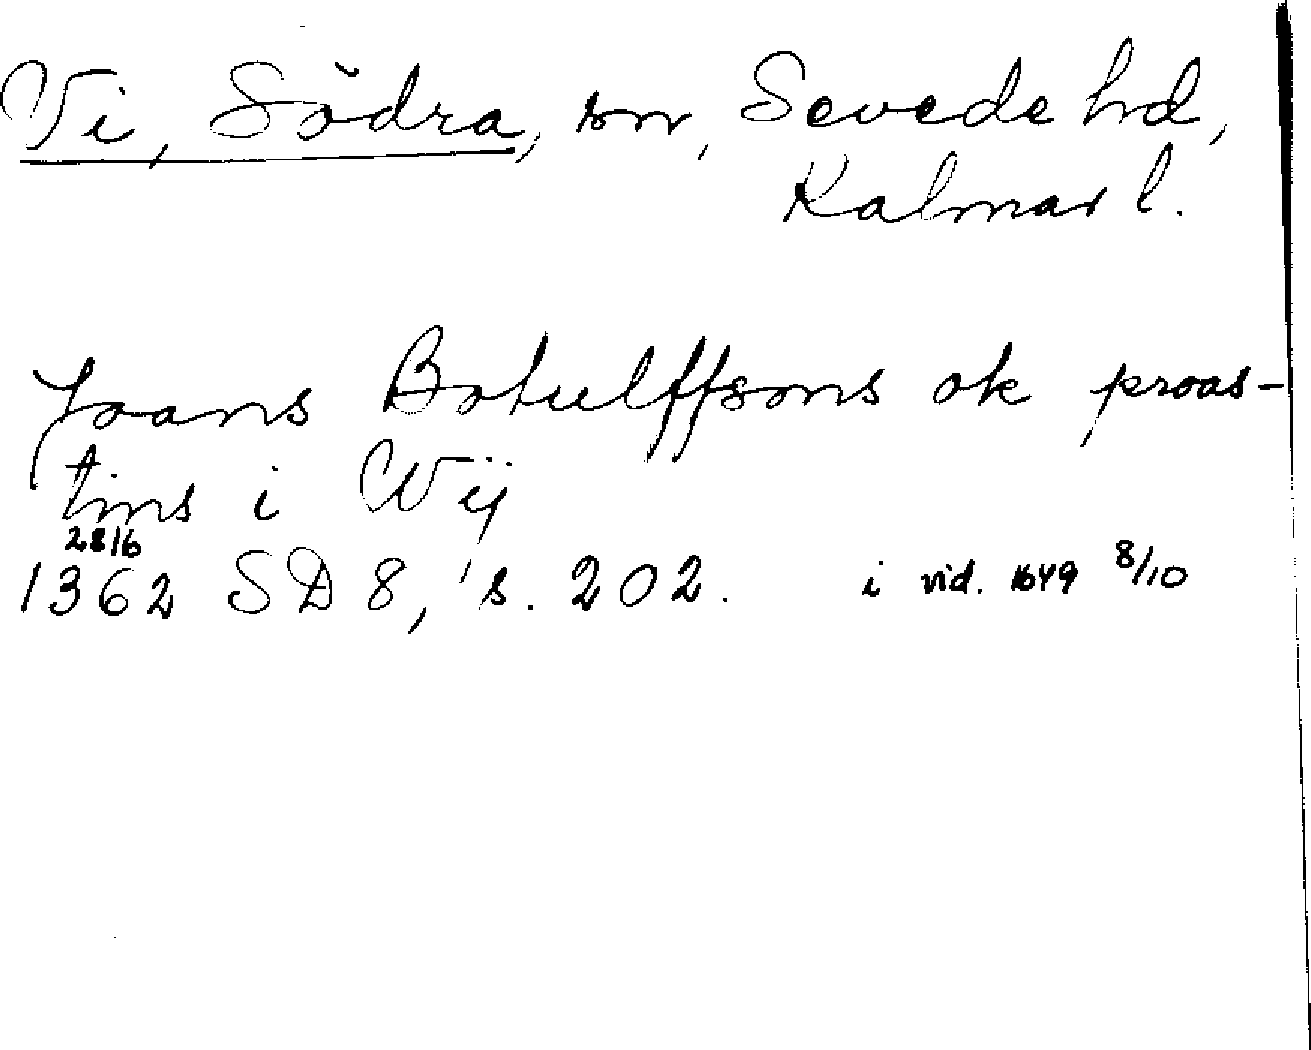 Vi, Södra, sn, Sevede hd,
Kalmar l.
Joans Botulffsons ok proas-
tins i Wij
28/6
1362 SD 8, s. 202. i vid. 1649 8/10